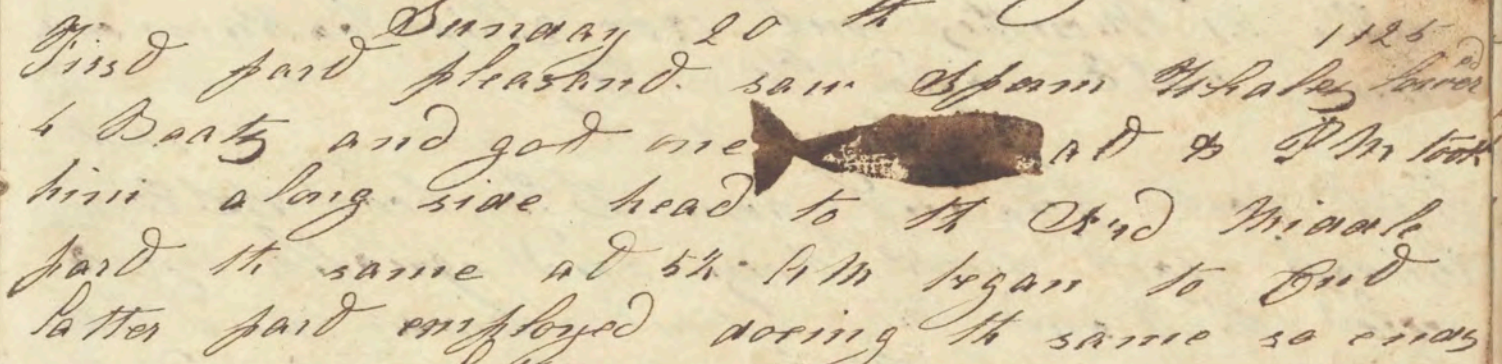 Sunday 20 th
1125
First part pleasant saw Sperm Whales lowerd
4 Boats and got one at PM took
him along side head to th Middle
part th same at 5½ AM began to Cut
latter part employed doeing th same so ends